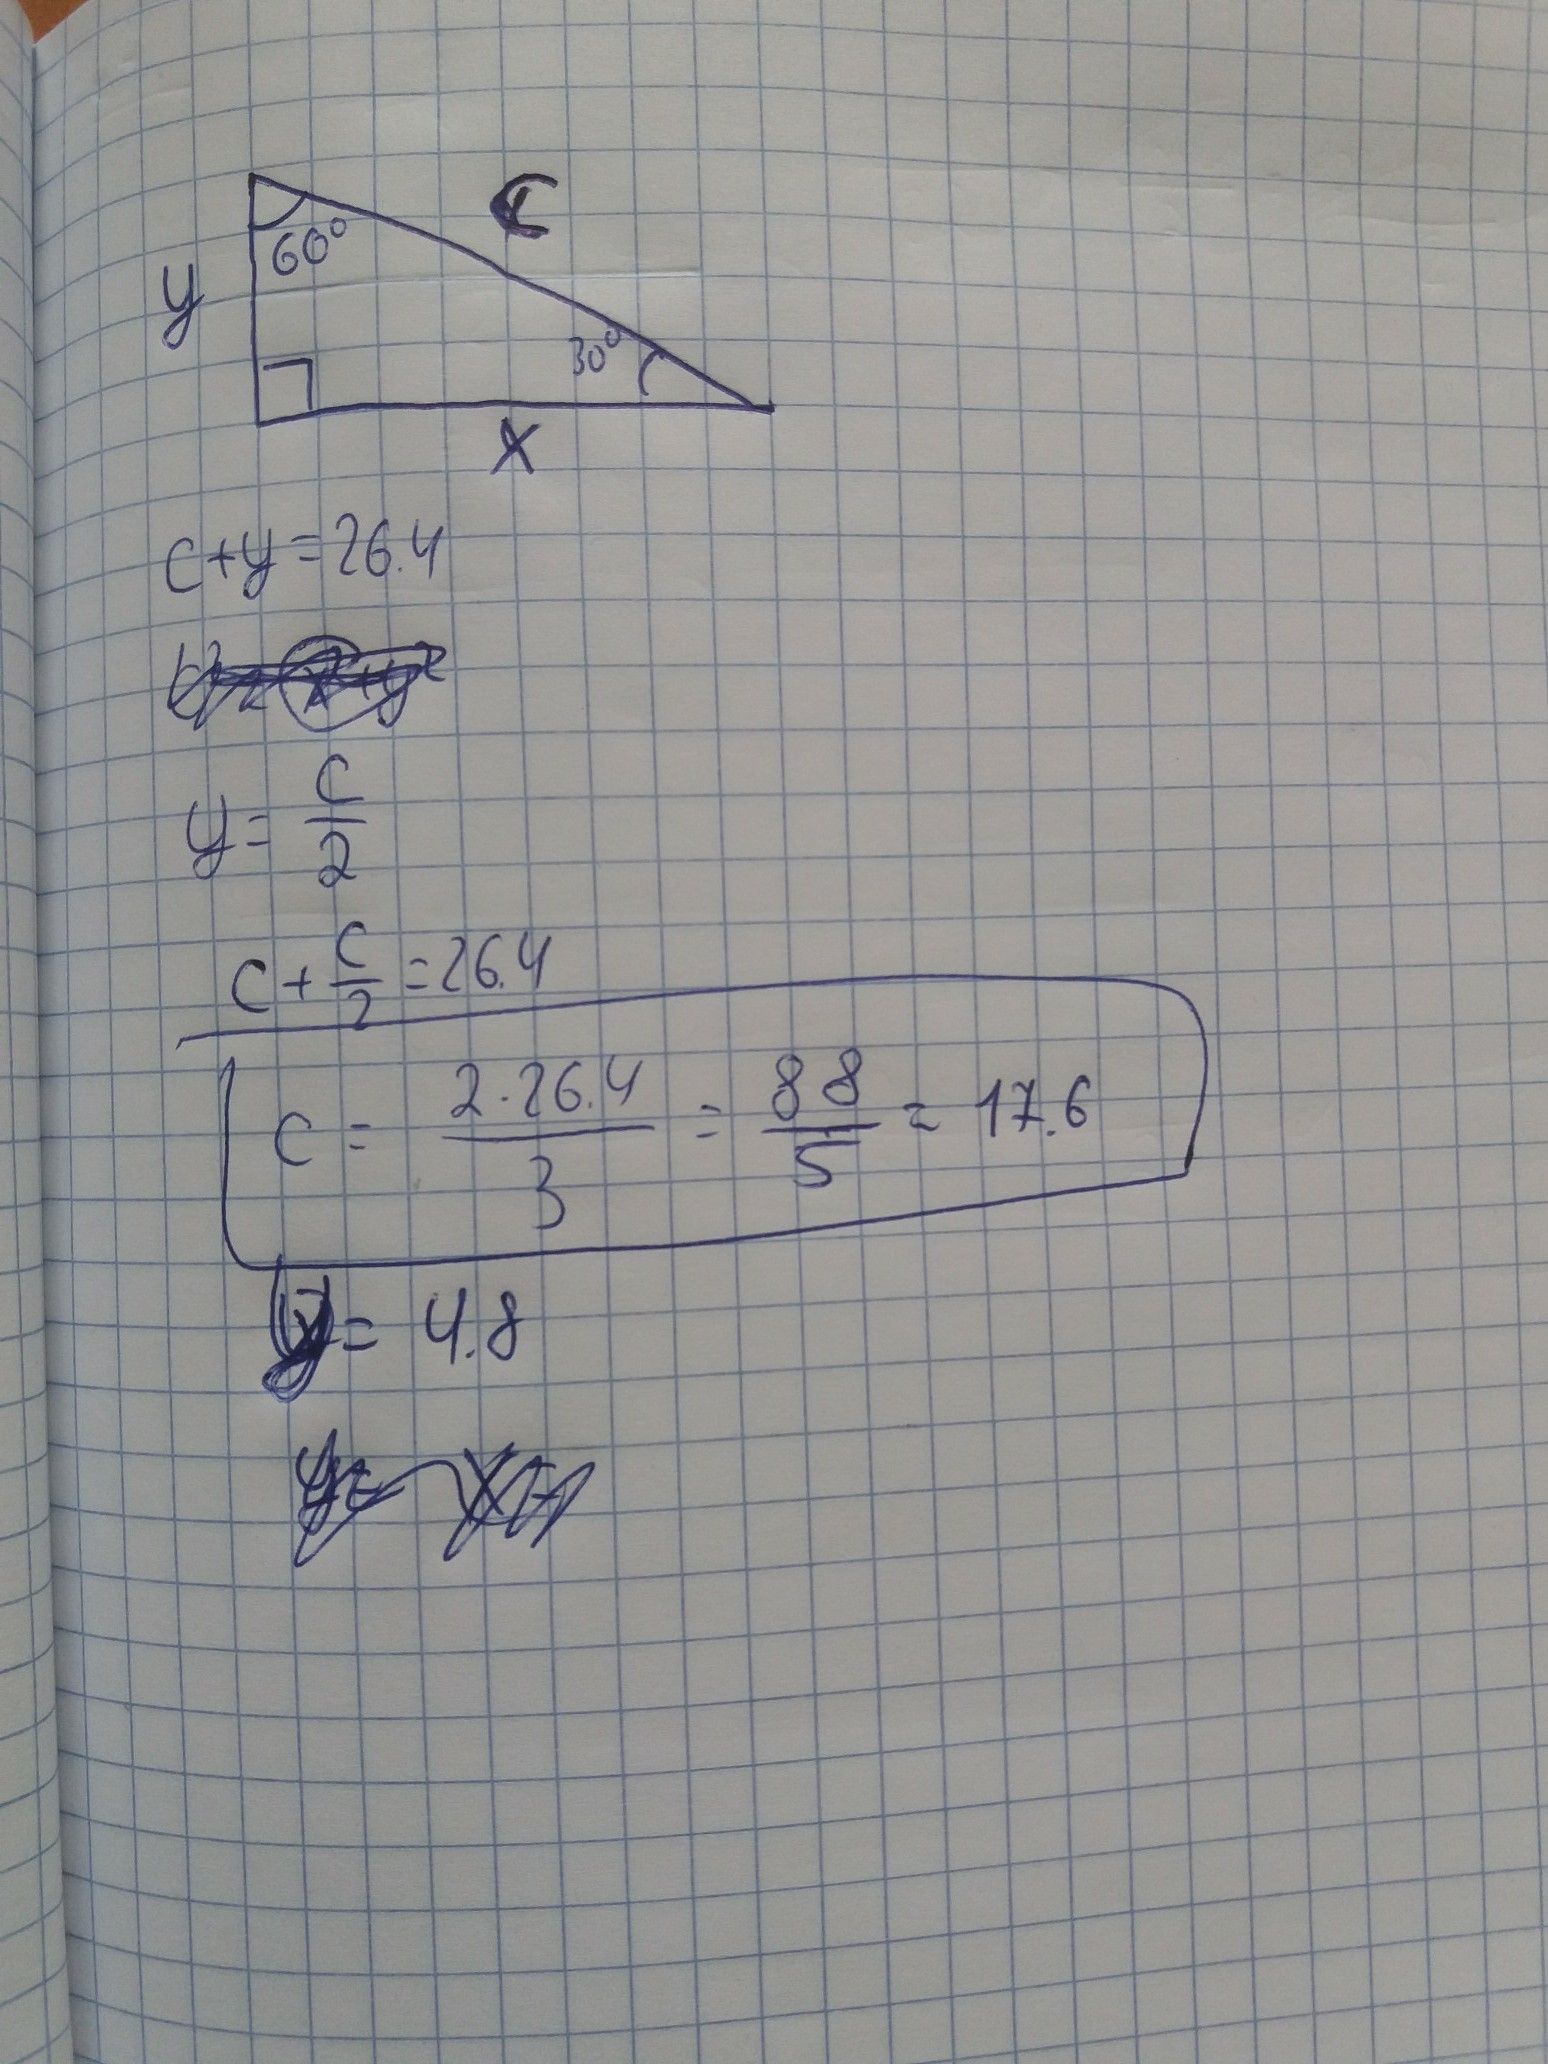 C
60°
y
30°
x
c+y=26.4
y = c/2
c + c/2 = 26.4
c = 2·26.4/3 = 88/5 = 17.6
y = 4.8